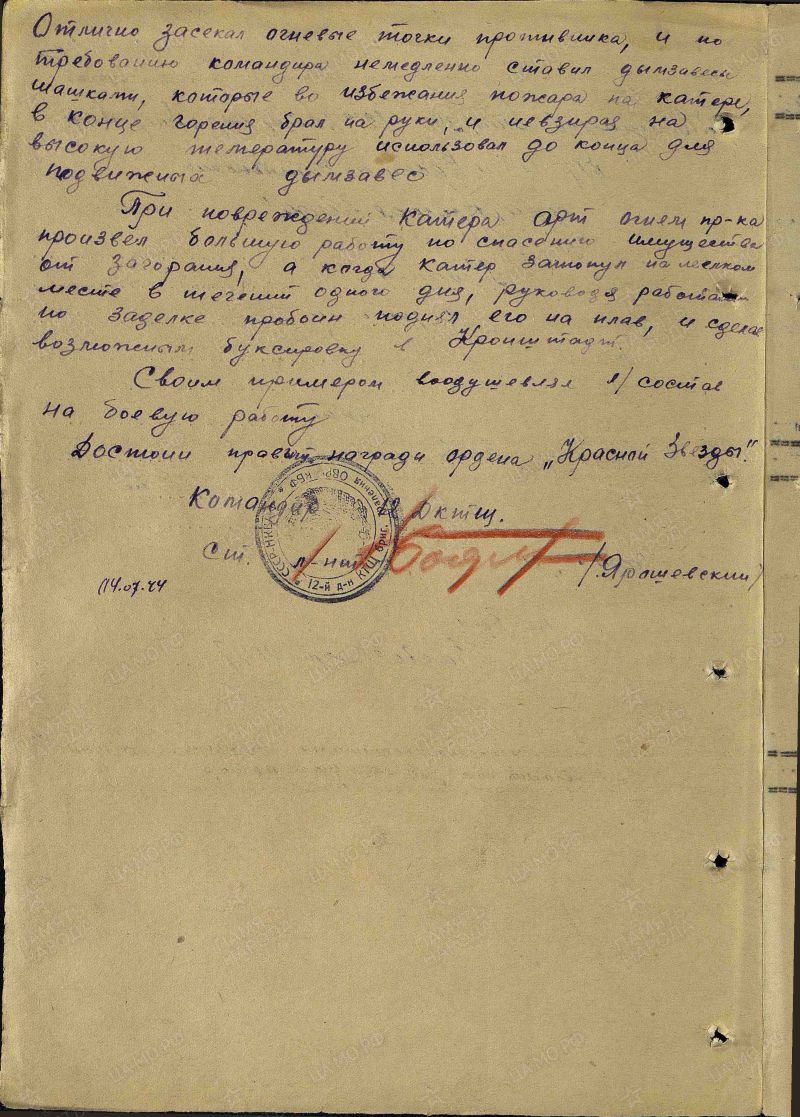 Отлично засекал огневые точки противника, и по
требованию командира немедленно ставил дымзавесы
шашками, которые во избежания пожара на катере,
в конце горения брал на руки, и невзирая на
высокую температуру использовал до конца для
подвижных дымзавес
При повреждении катера арт огнем пр-ка
произвел большую работу по спасению имущества
от загорания, а когда катер затонул на мелком
месте в течении одного дня, руководя работами
по заделке пробоин поднял его на плав, и сделал
возможным буксировку в Кронштадт.
Своим примером воодушевлял л/состав
на боевую работу
Достоин правит. награды ордена „Красной Звезды".
Командир 12 Дктщ.
ст. л-нант /Ярошевский/
14.07.44
СССР НКВМФ 12-й д-н КТЩ бриг. траления ОВР КБФ
ПАМЯТЬ НАРОДА
ЦАМО РФ